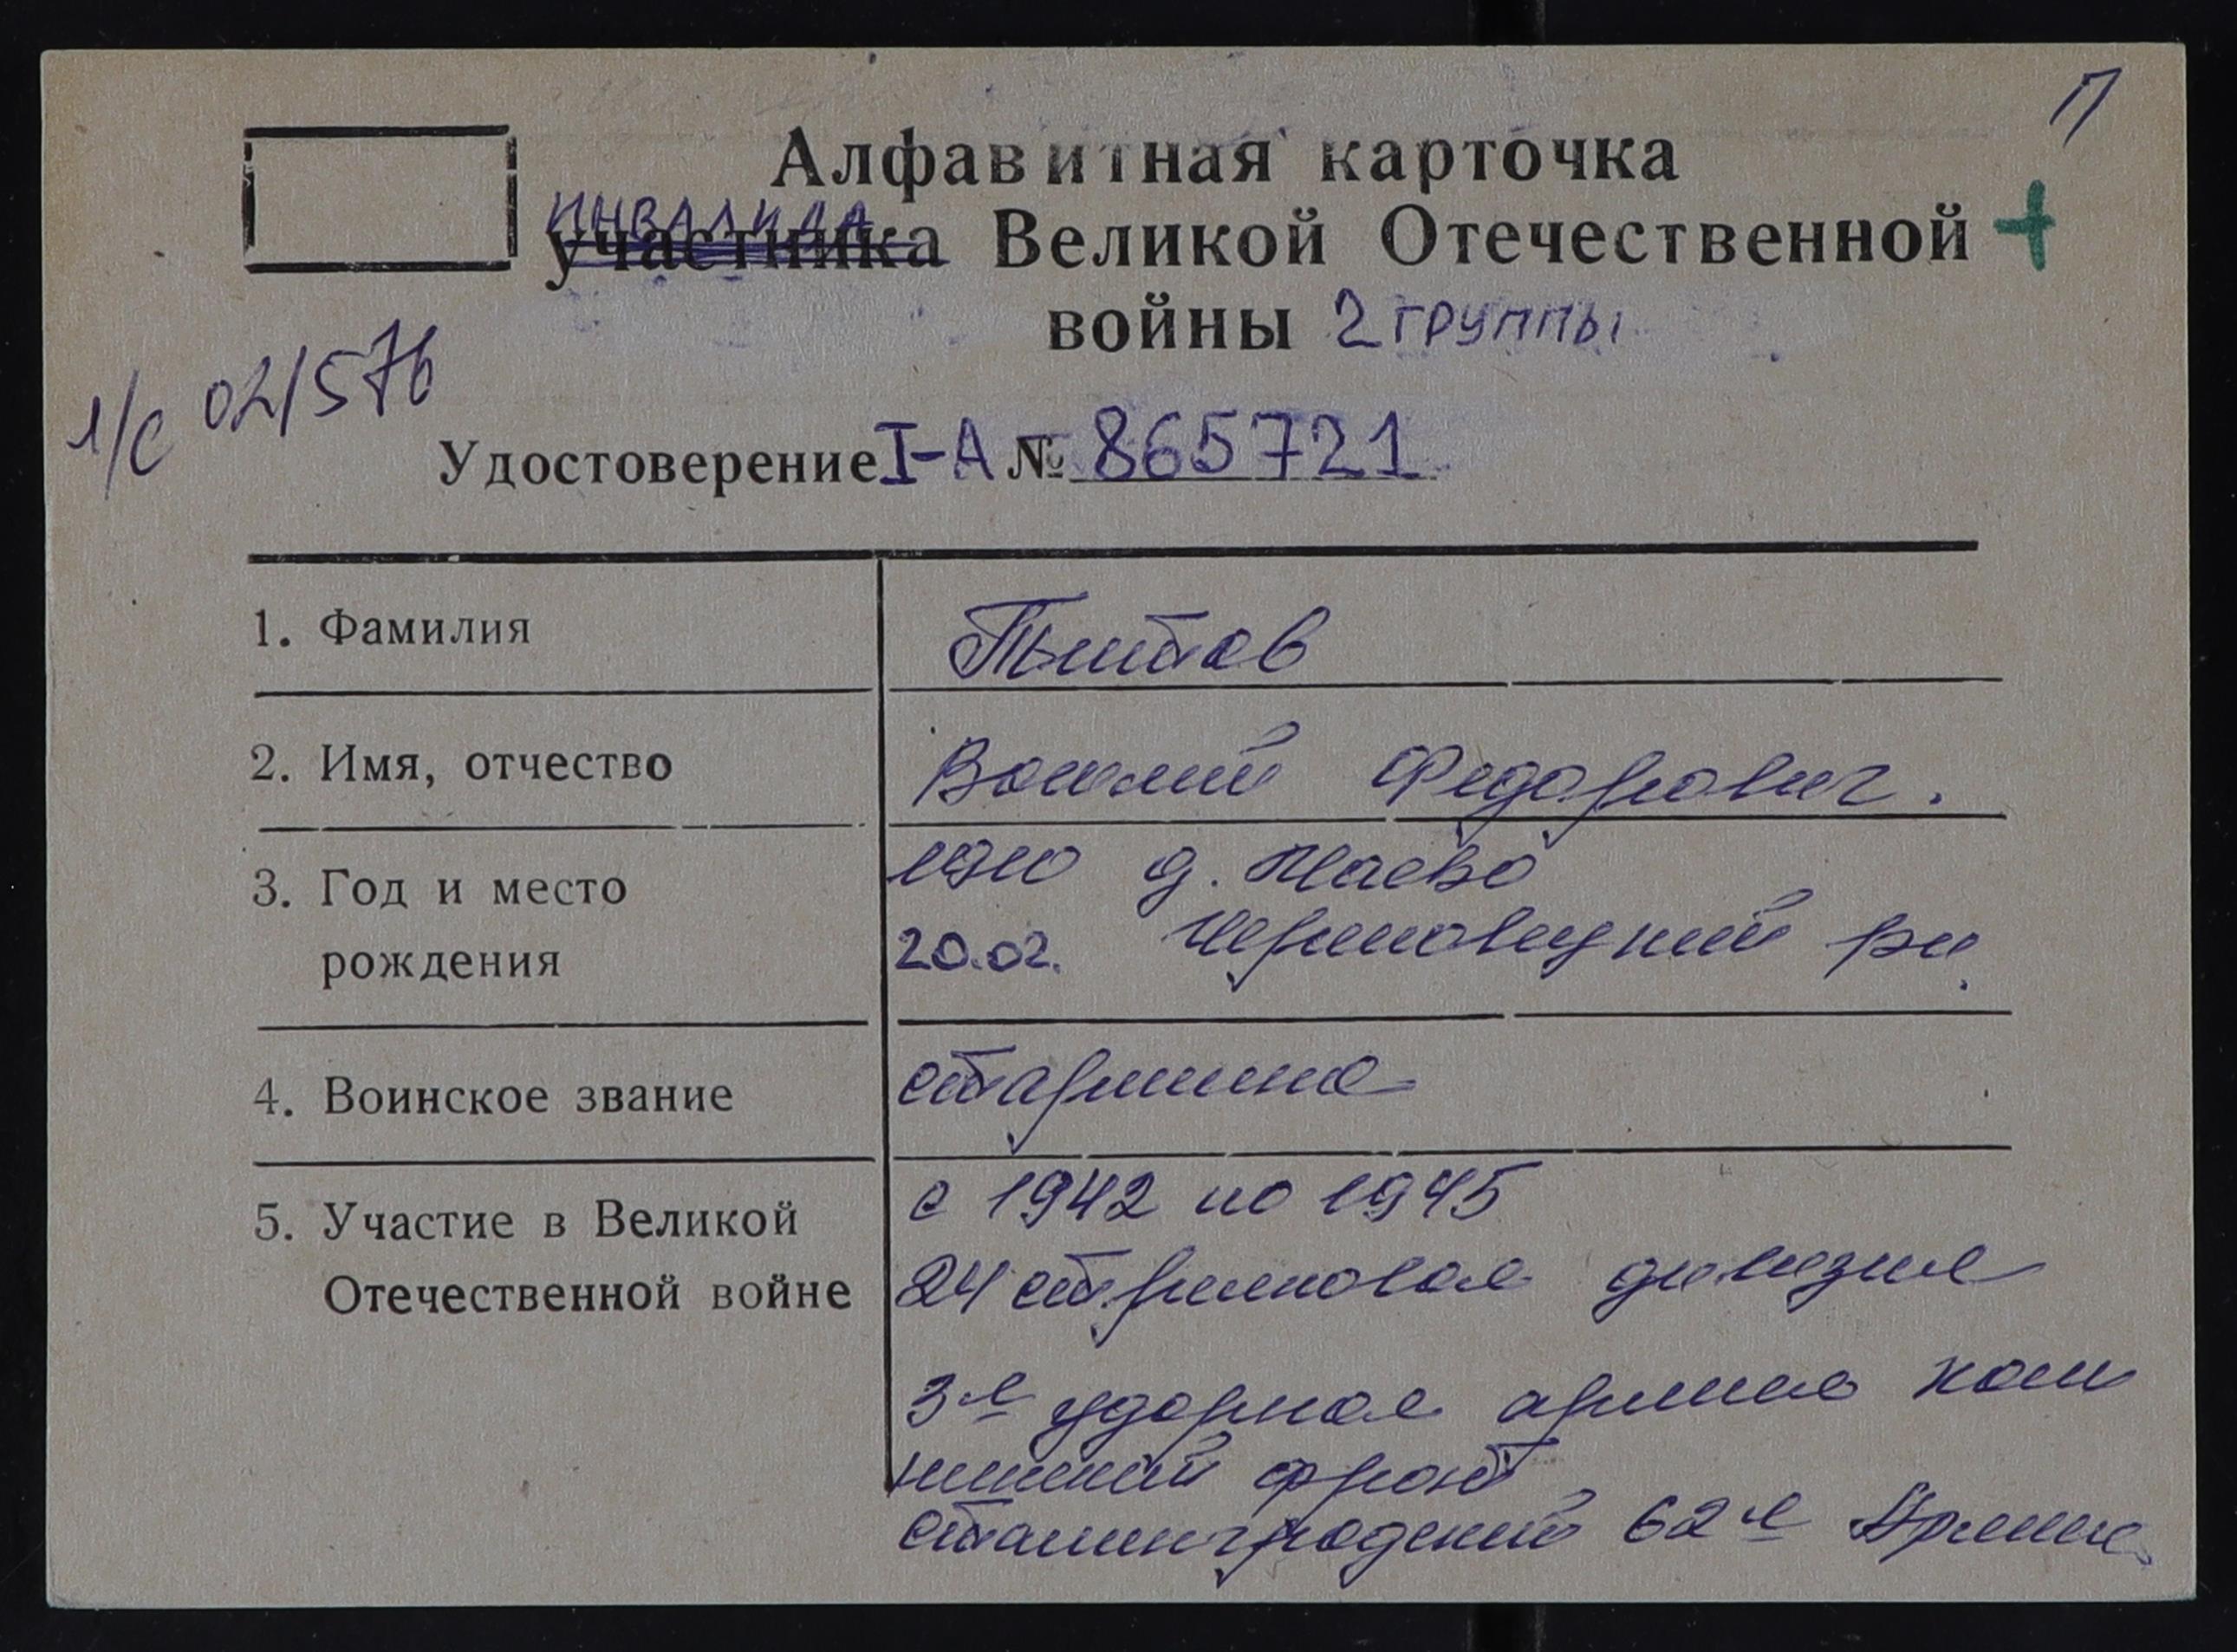 П
Алфавитная карточка
инвалида
участника Великой Отечественной +
войны 2 группы
л/с 02/576
Удостоверение I-А № 865721
1. Фамилия
2. Имя, отчество Василий Федорович.
3. Год и место 1910 д.
рождения 20.02. рн.
4. Воинское звание старшина
5. Участие в Великой с 1942 по 1945
Отечественной войне 24 стрелковая дивизия
3я ударная армия Кали
нинский фронт
Сталинградский 62я Армия